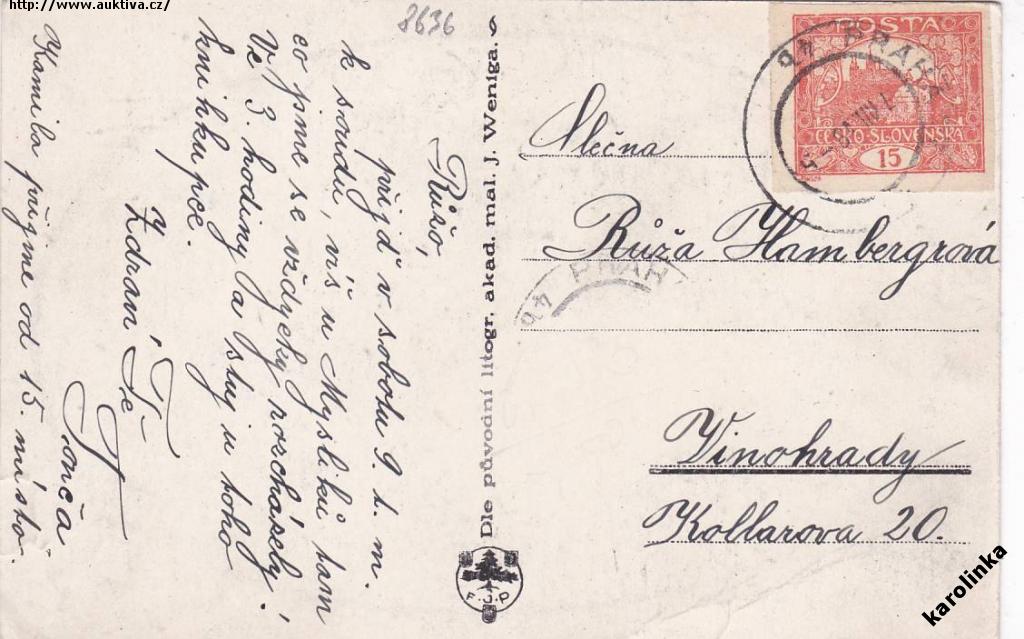 http://www.auktiva.cz/
8636
Růžo,
přijď v sobotu 9. t. m.
k soudu, víš u Myslíků tam
co jsme se vždycky rozcházely!
Ve 3 hodiny a stůj u toho
knihkupce.
Zdraví Tě
Tonča
Kamila přijme od 15. místo.
Dle původní litogr. akad. mal. J. Weniga.
F.J.P
POŠTA
ČESKO-SLOVENSKÁ
15
PRAH
Slečna
Růža Hambergrová
PRAH
Vinohrady
Kollarova 20.
karolinka